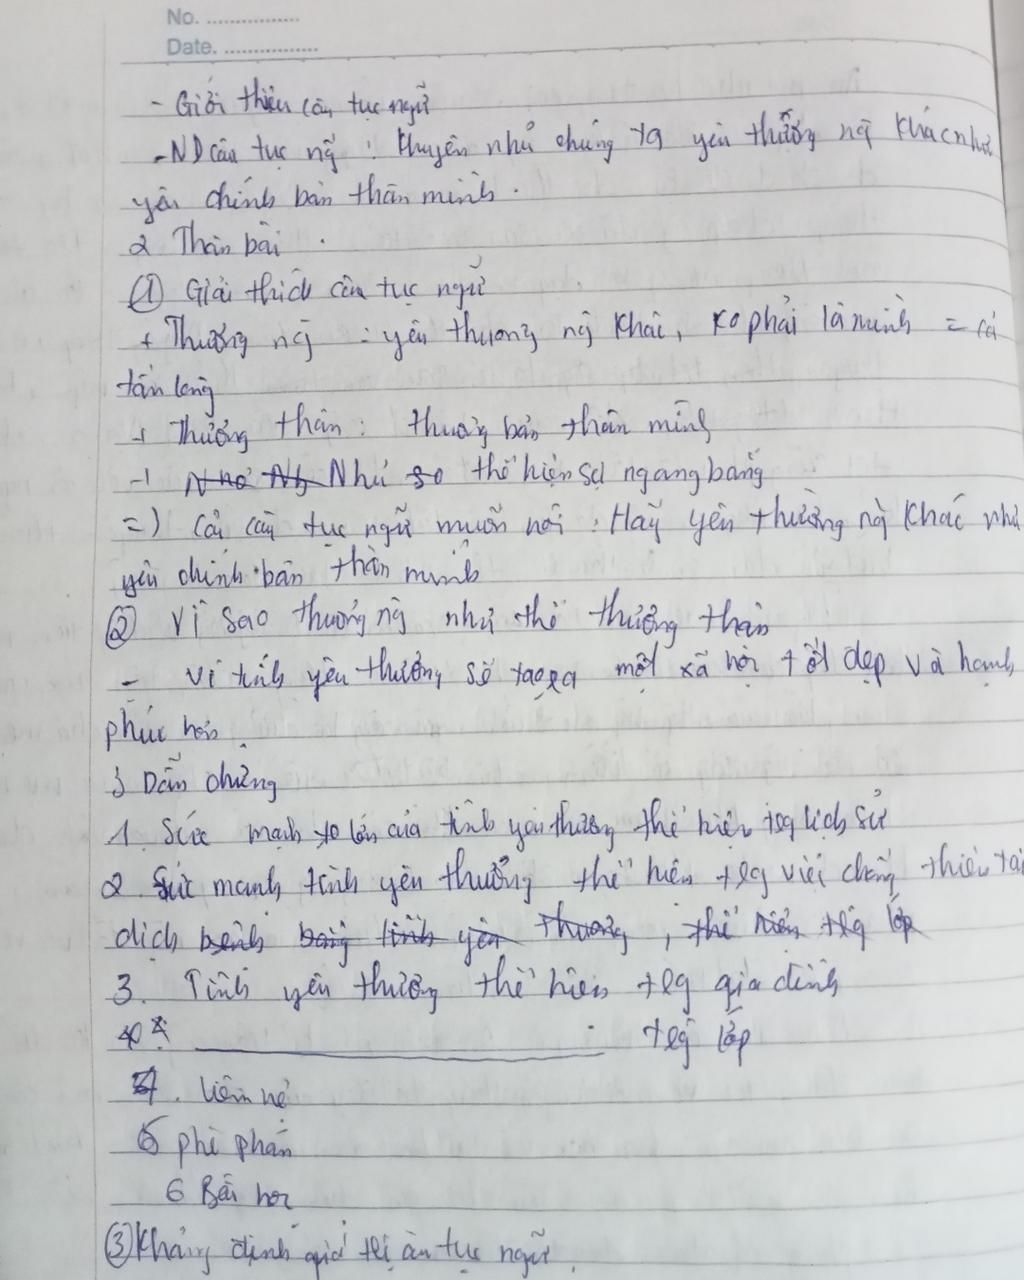 No. ................
Date. ................
- Giới thiệu câu tục ngữ
- ND câu tục ngữ : Khuyên nhủ chúng ta yêu thương ng khác như
yêu chính bản thân mình.
2 Thân bài
① Giải thích câu tục ngữ
+ Thương ng : yêu thương ng khác, ko phải là mình = cả
tấm lòng
+ Thương thân : thương bản thân mình
+ Như so thể hiện sự ngang bằng
=) Cả câu tục ngữ muốn nói : Hãy yêu thương ng khác như
yêu chính bản thân mình
② Vì sao thương ng như thể thương thân
- Vì tình yêu thương sẽ tạo ra một xã hội tốt đẹp và hạnh
phúc hơn.
3 Dẫn chứng
1. Sức mạnh to lớn của tình yêu thương thể hiện trg lịch sử
2. Sức mạnh tình yêu thương thể hiện trg việc chống thiên tai
dịch bệnh bằng tình yêu thương, thể hiện trg lớp
3. Tình yêu thương thể hiện trg gia đình
trg lớp
4. Liên hệ
5 phê phán
6 Bài học
③ Khẳng định giá trị câu tục ngữ.